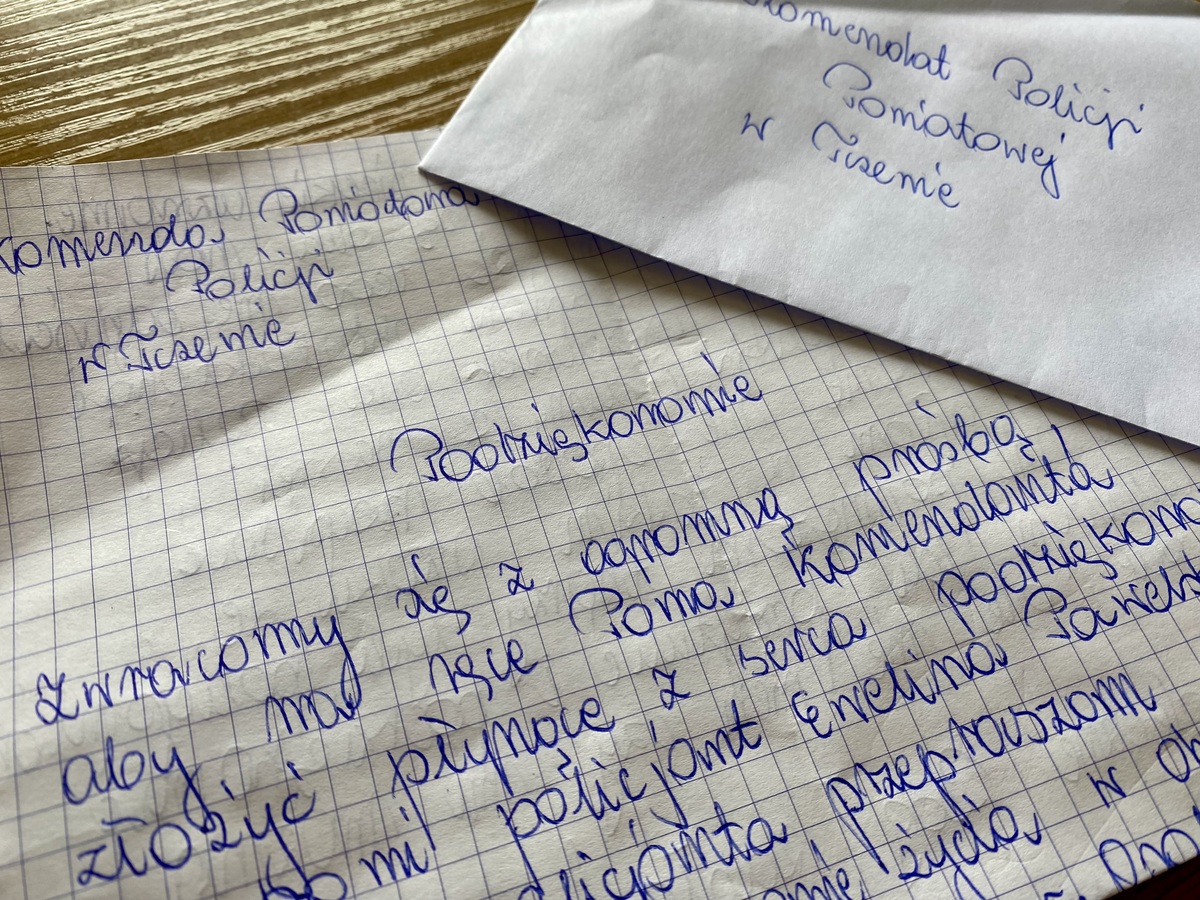 Komendat Policji
Powiatowej
w Tczewie
Komenda Powiatowa
Policji
w Tczewie
Podziękowanie
Zwracamy się z ogromną prośbą,
aby na ręce Pana Komendanta
złożyć płynące z serca podziękowa
policjant Ewelina Pawels
przepraszam
życia w